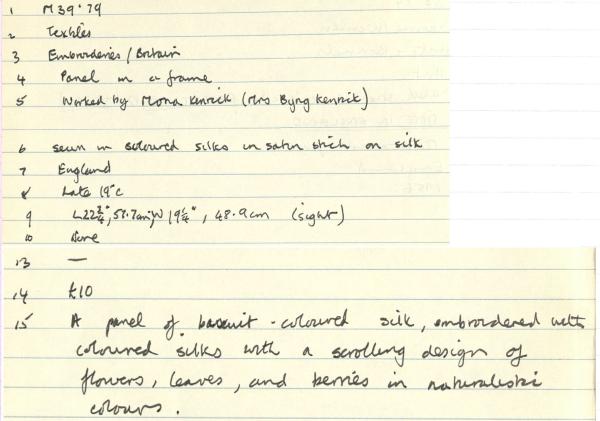 1 M39·79
2 Textiles
3 Embroideries / Britain
4 Panel in a frame
5 Worked by Mona Kenrick (Mrs Byng Kenrick)
6 sewn in coloured silks in satin stich on silk
7 England
8 Late 19th c
9 L 22¾", 57.7cm, W 19¼", 48.9cm (sight)
10 None
13 —
14 £10
15 A panel of -coloured silk, embroidered with
coloured silks with a scrolling design of
flowers, leaves, and berries in naturalistic
colours.